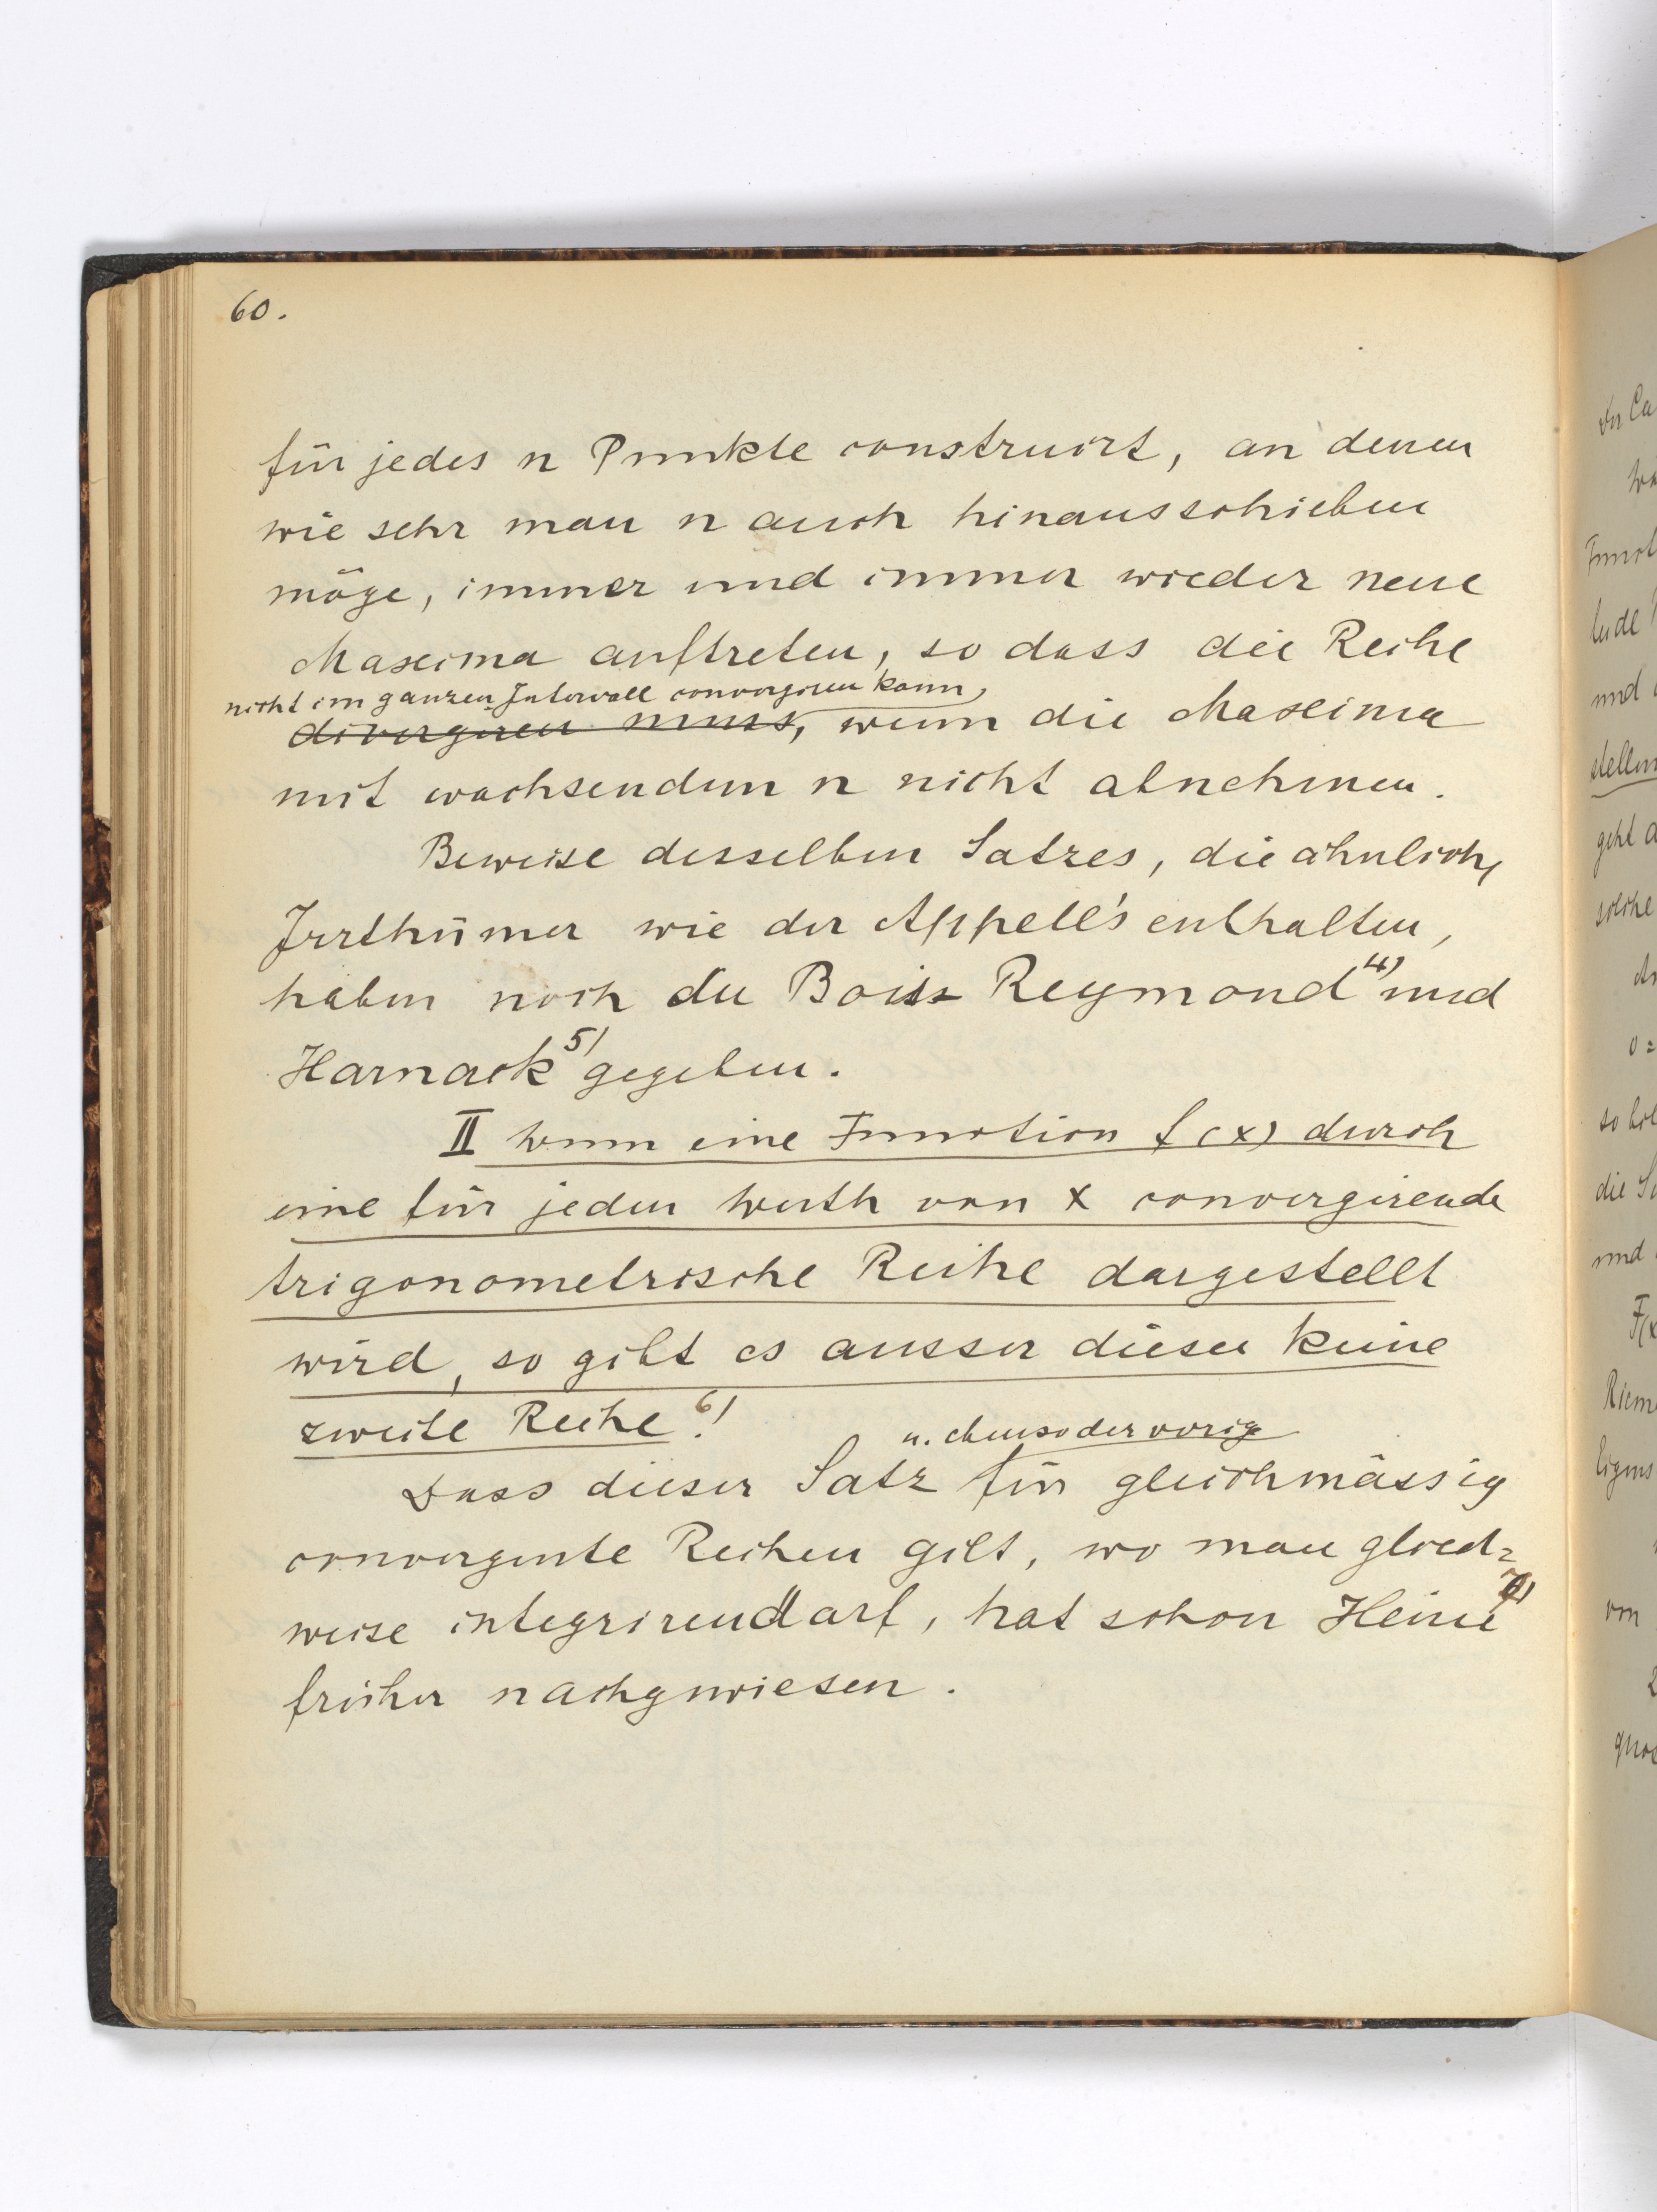 60.
für jedes n Punkte construirt, an denen
wie sehr man n auch hinausschieben
möge, immer und immer wieder neue
Maxima auftreten, so dass die Reihe
nicht im ganzen Intervall convergiren kann,
divergiren muss, wenn die Maxima
mit wachsendem n nicht abnehmen.
Beweise desselben Satzes, die ähnliche
Irrthümer wie der Appell's enthalten,
haben noch du Bois Reymond 4) und
Harnack 5) gegeben.
II Wenn eine Function f(x) durch
eine für jeden Werth von x convergirende
trigonometrische Reihe dargestellt
wird, so gibt es ausser dieser keine
zweite Reihe 6).
u. ebenso der vorige
Dass dieser Satz für gleichmässig
convergente Reihen gilt, wo man glied=
weise integriren darf, hat schon Heine 7)
früher nachgewiesen.